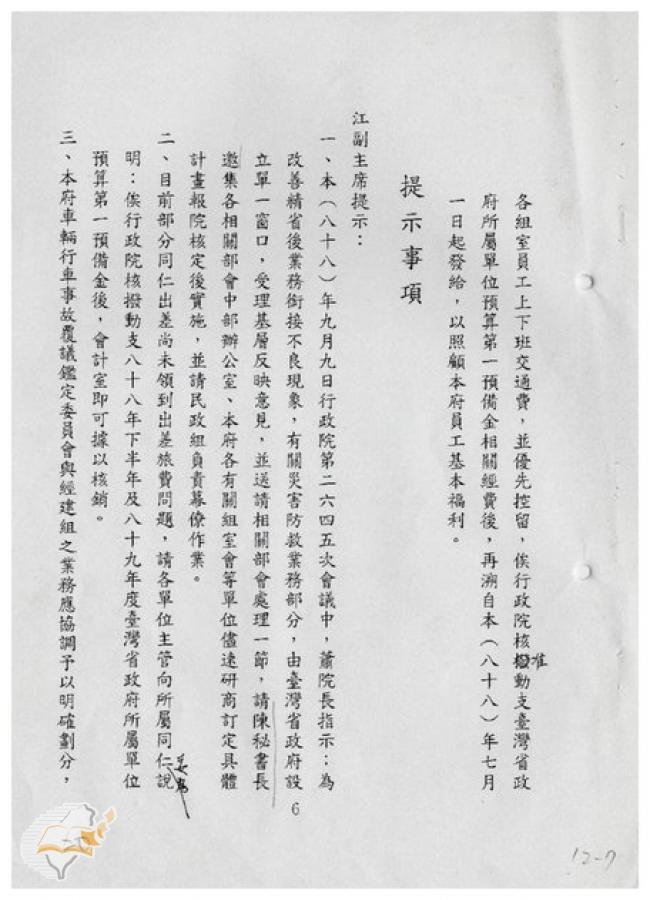 各組室員工上下班交通費，並優先控留，俟行政院核撥動支臺灣省政
准
府所屬單位預算第一預備金相關經費後，再溯自本（八十八）年七月
一日起發給，以照顧本府員工基本福利。
提示事項
江副主席提示：
一、本（八十八）年九月九日行政院第二六四五次會議中，蕭院長指示：為
改善精省後業務銜接不良現象，有關災害防救業務部分，由臺灣省政府設
立單一窗口，受理基層反映意見，並送請相關部會處理一節，請陳秘書長
邀集各相關部會中部辦公室、本府各有關組室會等單位儘速研商訂定具體
計畫報院核定後實施，並請民政組負責幕僚作業。
二、目前部分同仁出差尚未領到出差旅費問題，請各單位主管向所屬同仁說
明：俟行政院核撥動支八十八年下半年及八十九年度臺灣省政府所屬單位
預算第一預備金後，會計室即可據以核銷。
三、本府車輛行車事故覆議鑑定委員會與經建組之業務應協調予以明確劃分，
6
12-7